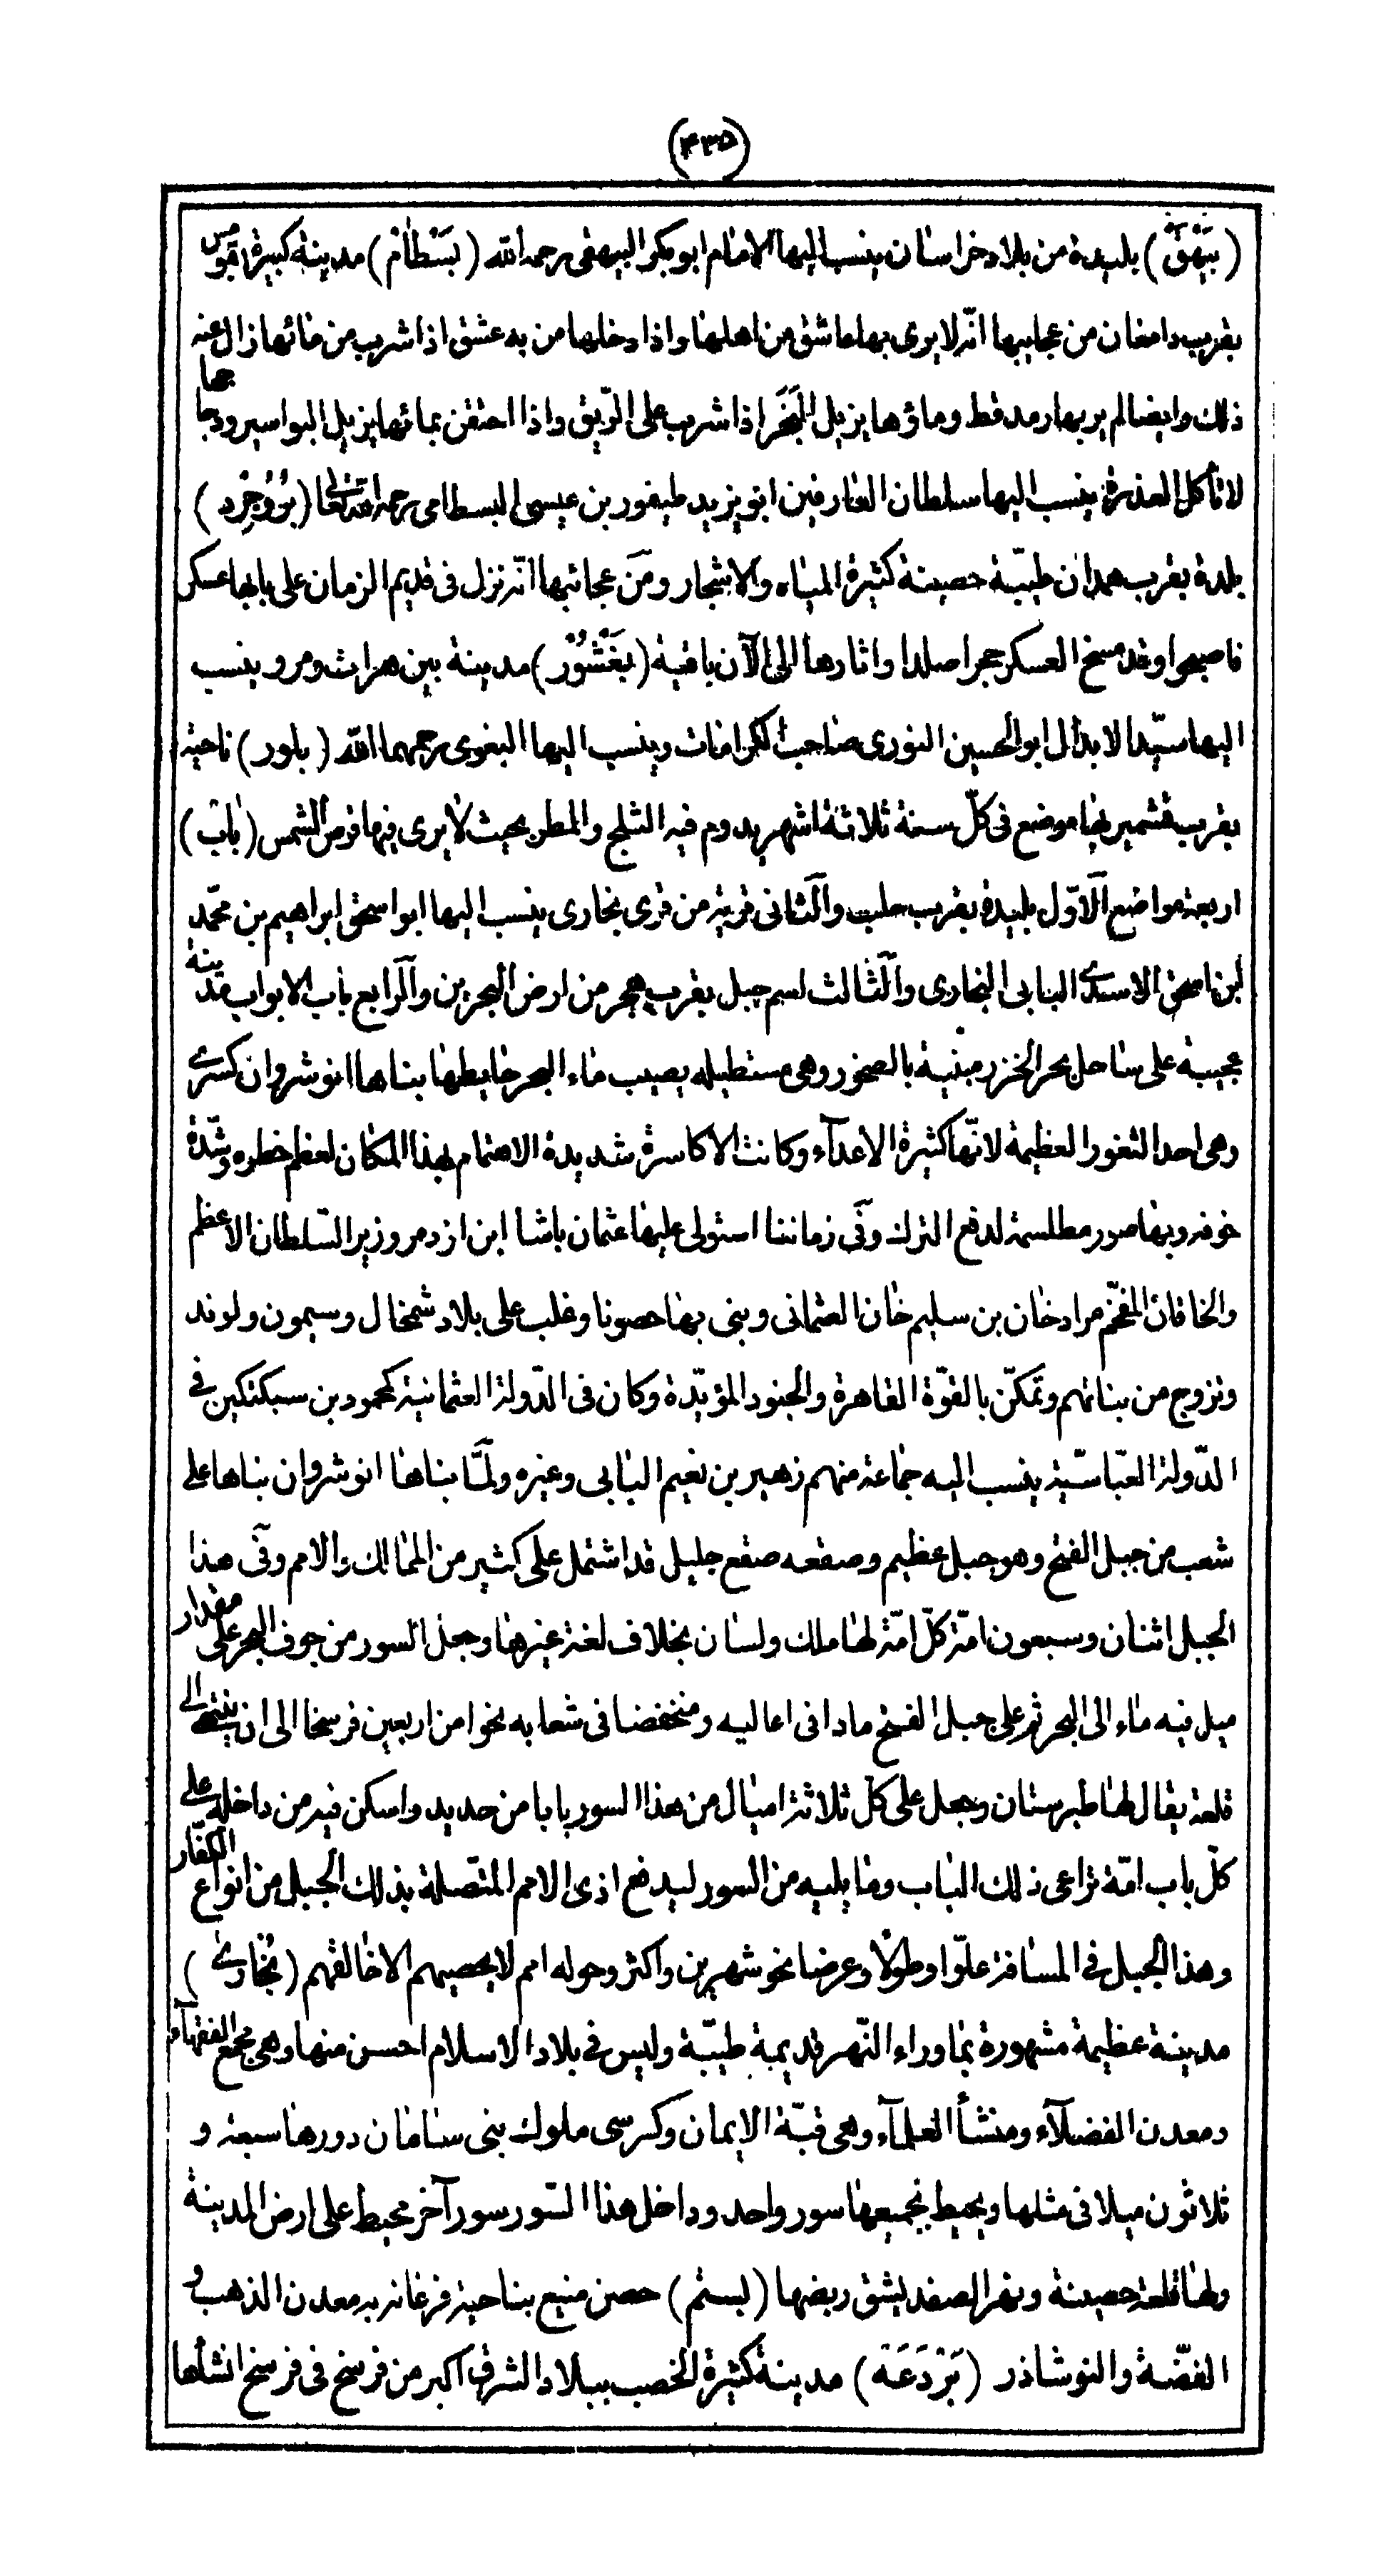 (۴۳۵)
(بَيْهَقْ) بليدة من بلاد خراسان ينسب اليها الامام ابو بكر البيهقى رحمه الله (بَسْطَامْ) مدينة كبيرة بقومس
بقرب دامغان من عجايبها انّه لا يرى بها عاشق من اهلها واذا دخلها من به عشق اذا شرب من مائها زال عنه
ذلك وايضا لم ير بها رمد قط وماؤها يزيل البَخَر اذا شرب على الرّيق واذا احتقن بمائها يزيل البواسير ودجاجها
لا تأكل العذرة ينسب اليها سلطان العارفين ابو يزيد طيفور بن عيسى البسطامى رحمه الله تعالى (بُرُوجِرْد)
بلدة بقرب همدان طيّبة حصينة كثيرة المياه والاشجار ومن عجائبها انّه نزل فى قديم الزمان على بابها عسكر
فاصبحوا وقد مسخ العسكر حجرا صلدا واثارها الى الآن باقية (بَغْشُوْر) مدينة بين هراة ومرو وينسب
اليها سيّد الابدال ابو الحسين النورى صاحب الكرامات وينسب اليها البغوى رحمهما الله (بلور) ناحية
بقرب قشمير بها موضع فى كلّ سنة ثلاثة اشهر يدوم فيه الثلج والمطر بحيث لا يرى فيها قرص الشمس (بابْ)
اربعة مواضع الاوّل بليدة بقرب حلب والثانى قرية من قرى بخارى ينسب اليها ابو اسحق ابراهيم بن محمّد
ابن اسحق الاسدى البابى البخارى والثالث اسم جبل بقرب هجر من ارض البحرين والرابع باب الابواب مدينة
عجيبة على ساحل بحر الخزر مبنية بالصخور وهى مستطيله يصيب ماء البحر حايطها بناها انوشروان كسرى
وهى احد الثغور العظيمة لانّها كثيرة الاعدآء وكانت الاكاسرة شديدة الاهتمام بهذا المكان لعظم خطره وشدّة
خوفه وبها صور مطلسمة لدفع الترك وفى زماننا استولى عليها عثمان باشا ابن ازدمر وزير السّلطان الاعظم
والخاقان المفخّم مراد خان بن سليم خان العثمانى وبنى بها حصونا وغلب على بلاد شمخال وسيمون ولوند
وتزوج من بناتهم وتمكّن بالقوّة القاهرة والجنود المؤيّدة وكان فى الدّولة العثمانية كمحمود بن سبكتكين فى
الدّولة العبّاسيّة ينسب اليه جماعة منهم زهير بن نعيم البابى وغيره ولمّا بناها انوشروان بناها على
شعب من جبل الفتح وهو جبل عظيم وصقعه صقع جليل قد اشتمل على كثير من الممالك والامم وفى هذا
الجبل اثنان وسبعون امّة كلّ امّة لها ملك ولسان بخلاف لغة غيرها وجعل السور من جوف البحر على مقدار
ميل فيه ماء الى البحر ثم على جبل الفتح مادا فى اعاليه ومنخفضا فى شعابه نحوا من اربعين فرسخا الى ان ينتهى الى
قلعة يقال لها طبرستان وجعل على كلّ ثلاثة اميال من هذا السور بابا من حديد واسكن فيه من داخله على
كلّ باب امّة تراعى ذلك الباب وما يليه من السور ليدفع اذى الامم المتّصلة بذلك الجبل من انواع الكفّار
وهذا الجبل فى المسافة علوّا وطولا وعرضا نحو شهرين واكثر وحوله امم لا يحصيهم الا خالقهم (بُخَارى)
مدينة عظيمة مشهورة بماوراء النّهر قديمة طيّبة وليس فى بلاد الاسلام احسن منها وهى مجمع الفقهآء
ومعدن الفضلآء ومنشأ العلمآء وهى قبّة الايمان وكرسى ملوك بنى سامان دورها سبعة و
ثلاثون ميلا فى مثلها ويحيط بجميعها سور واحد وداخل هذا السّور سور آخر محيط على ارض المدينة
ولها قلعة حصينة ونهر الصغد يشق ربضها (بستم) حصن منيع بناحية فرغانه به معدن الذهب و
الفضّة والنوشاذر (بَرْدَعَه) مدينة كثيرة الخصب ببلاد الشرق اكبر من فرسخ فى فرسخ انشأها